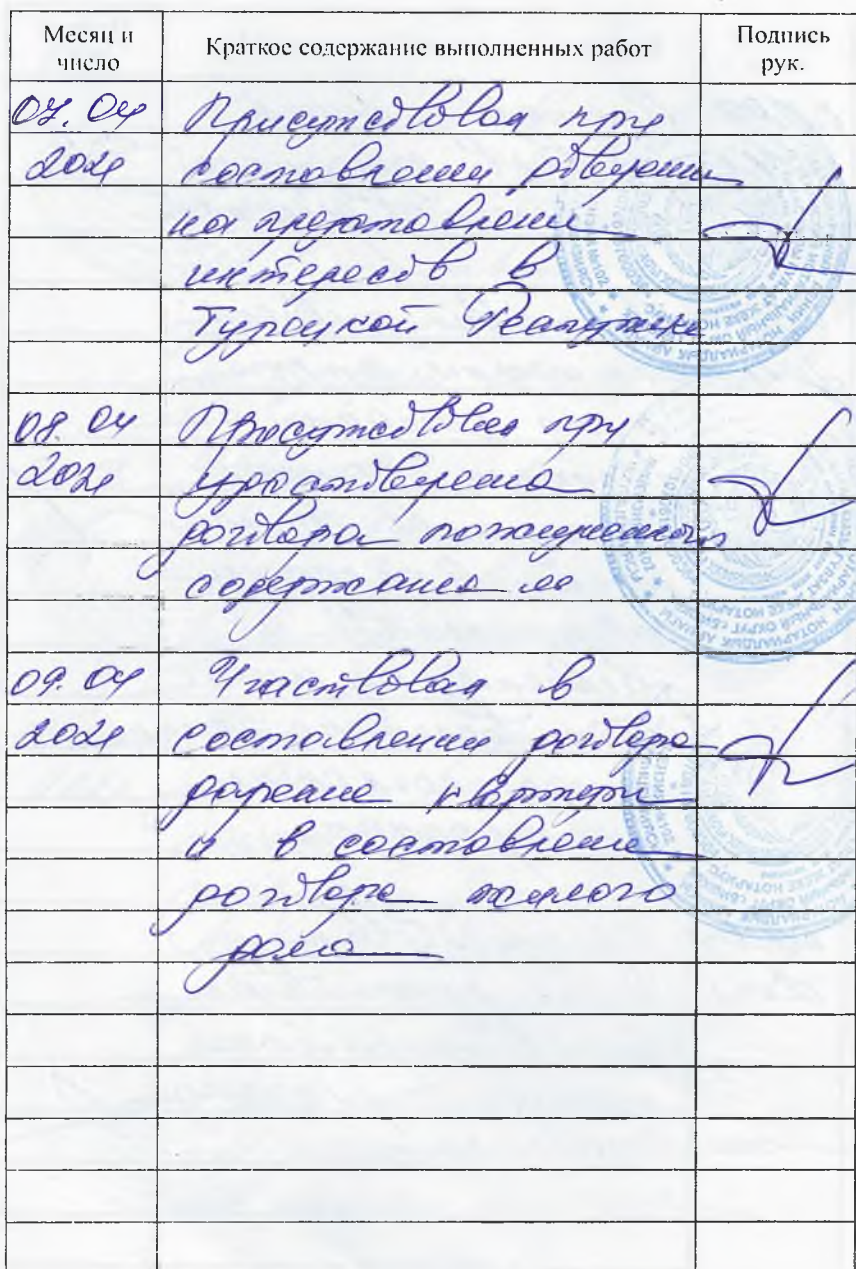 Месяц и число | Краткое содержание выполненных работ | Подпись рук.
07.04 Присутствовал при
2024 составлении доверени
на представлении
интересов в
Турецкой Республике
08.04 Присутствовал при
2024 удостоверена
договора пожизненного
содержания
09.04 Участвовал в
2024 составлении договора
дарение квартиры
и в составлении
договора жилого
дома